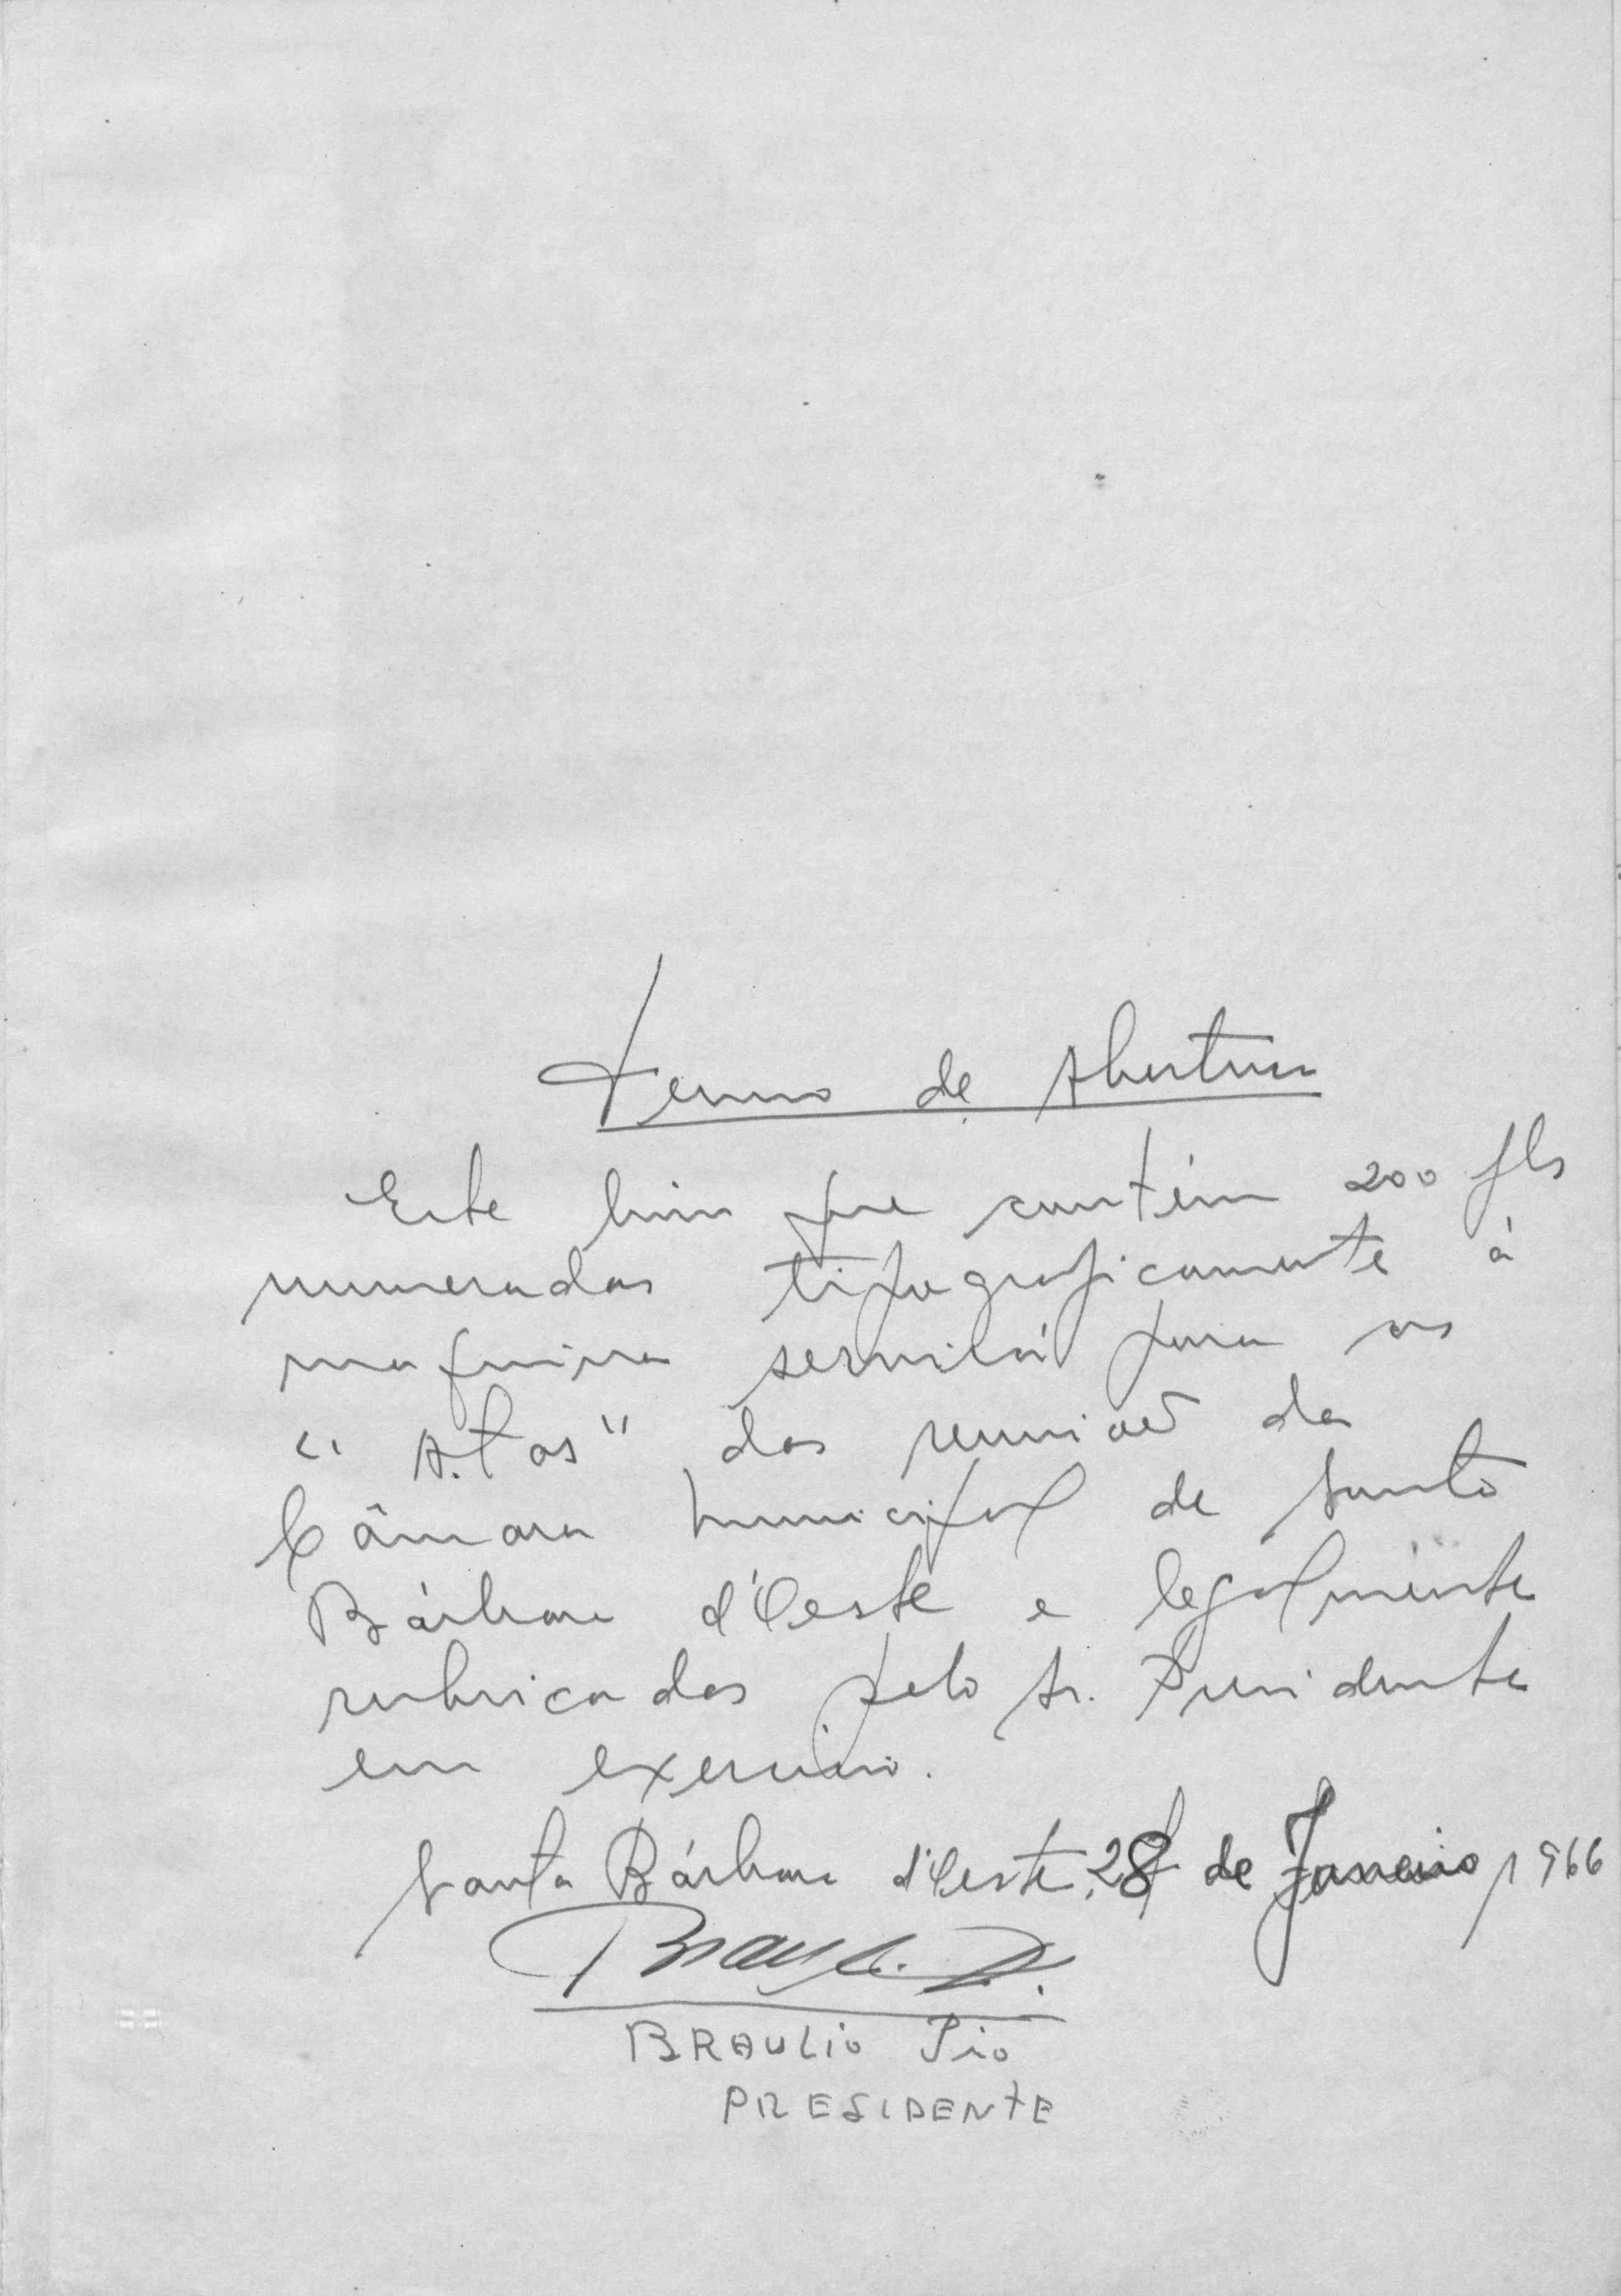 Termo de Abertura
Este livro que contém 200 fls
numeradas tipograficamente á
maquina servirá para as
"Atas" das reuniões da
Câmara Municipal de Santa
Bárbara d'Oeste e legalmente
rubricadas pelo Sr. Presidente
em exercicio.
Santa Bárbara d'Oeste, 28 de Janeiro 1966
Braulio P.
BRAULIO Pio
PRESIDENTE